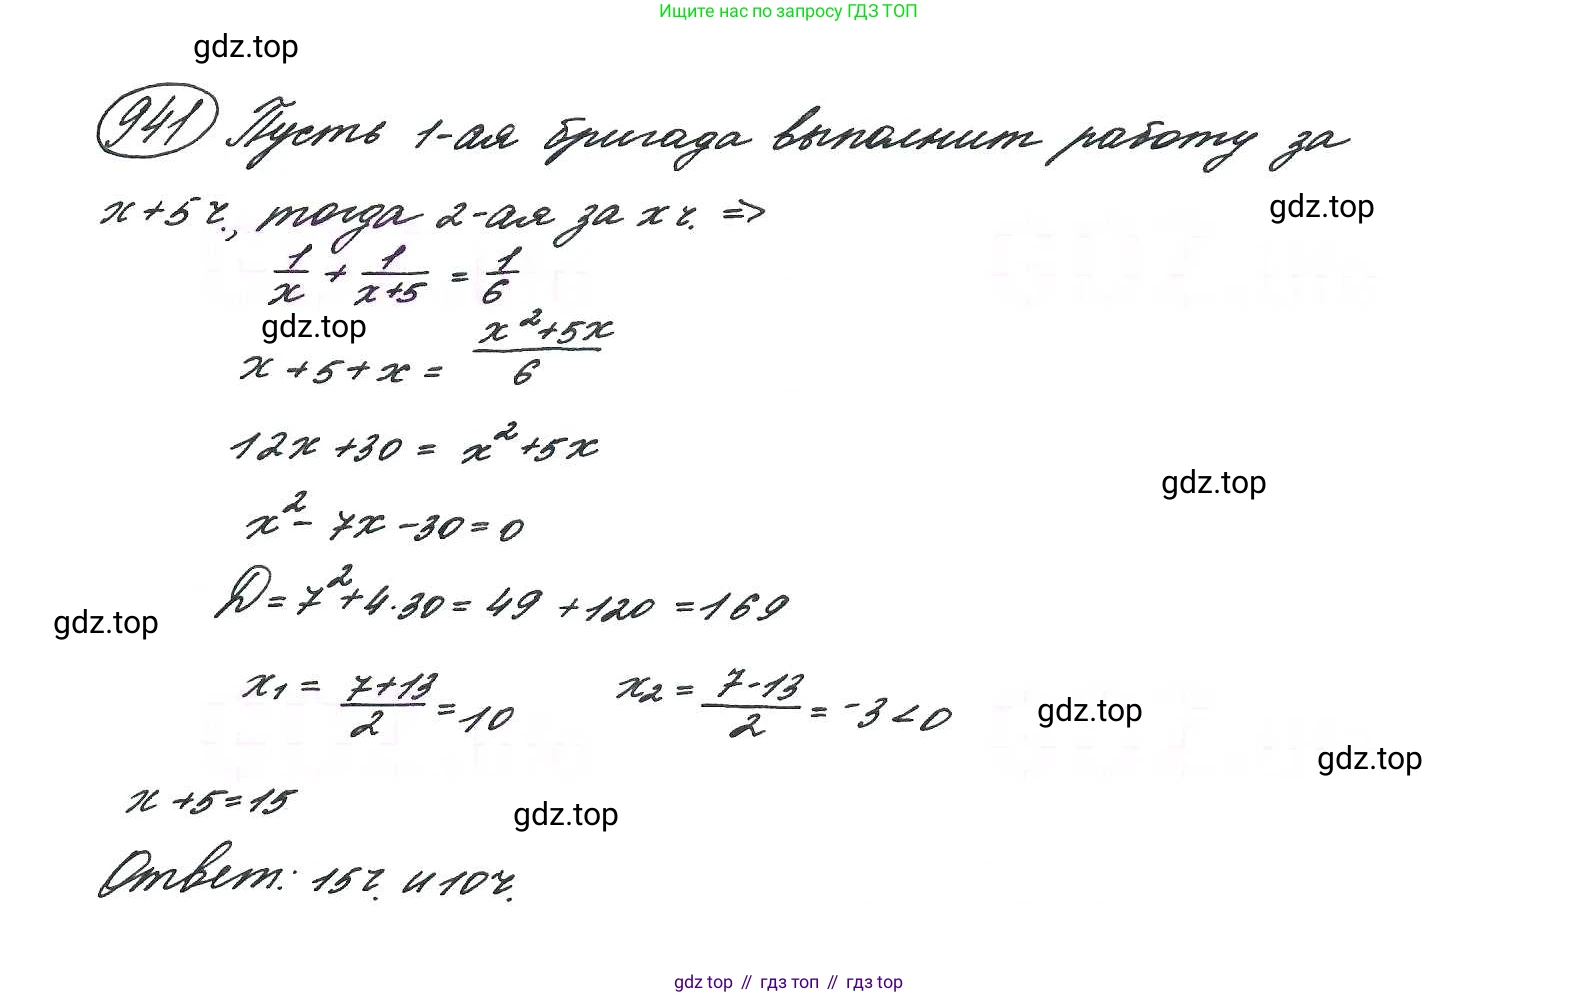 Ищите нас по запросу ГДЗ ТОП
gdz.top
941 Пусть 1-ая бригада выполнит работу за
x+5 ч., тогда 2-ая за x ч. =>
gdz.top
1/x + 1/(x+5) = 1/6
gdz.top
x+5+x = (x²+5x)/6
12x+30 = x²+5x
gdz.top
x²-7x-30=0
D=7²+4·30=49+120=169
gdz.top
x₁ = (7+13)/2 =10 x₂ = (7-13)/2 = -3<0
gdz.top
gdz.top
x+5=15
gdz.top
Ответ: 15ч. и 10ч.
gdz top // гдз топ // гдз top